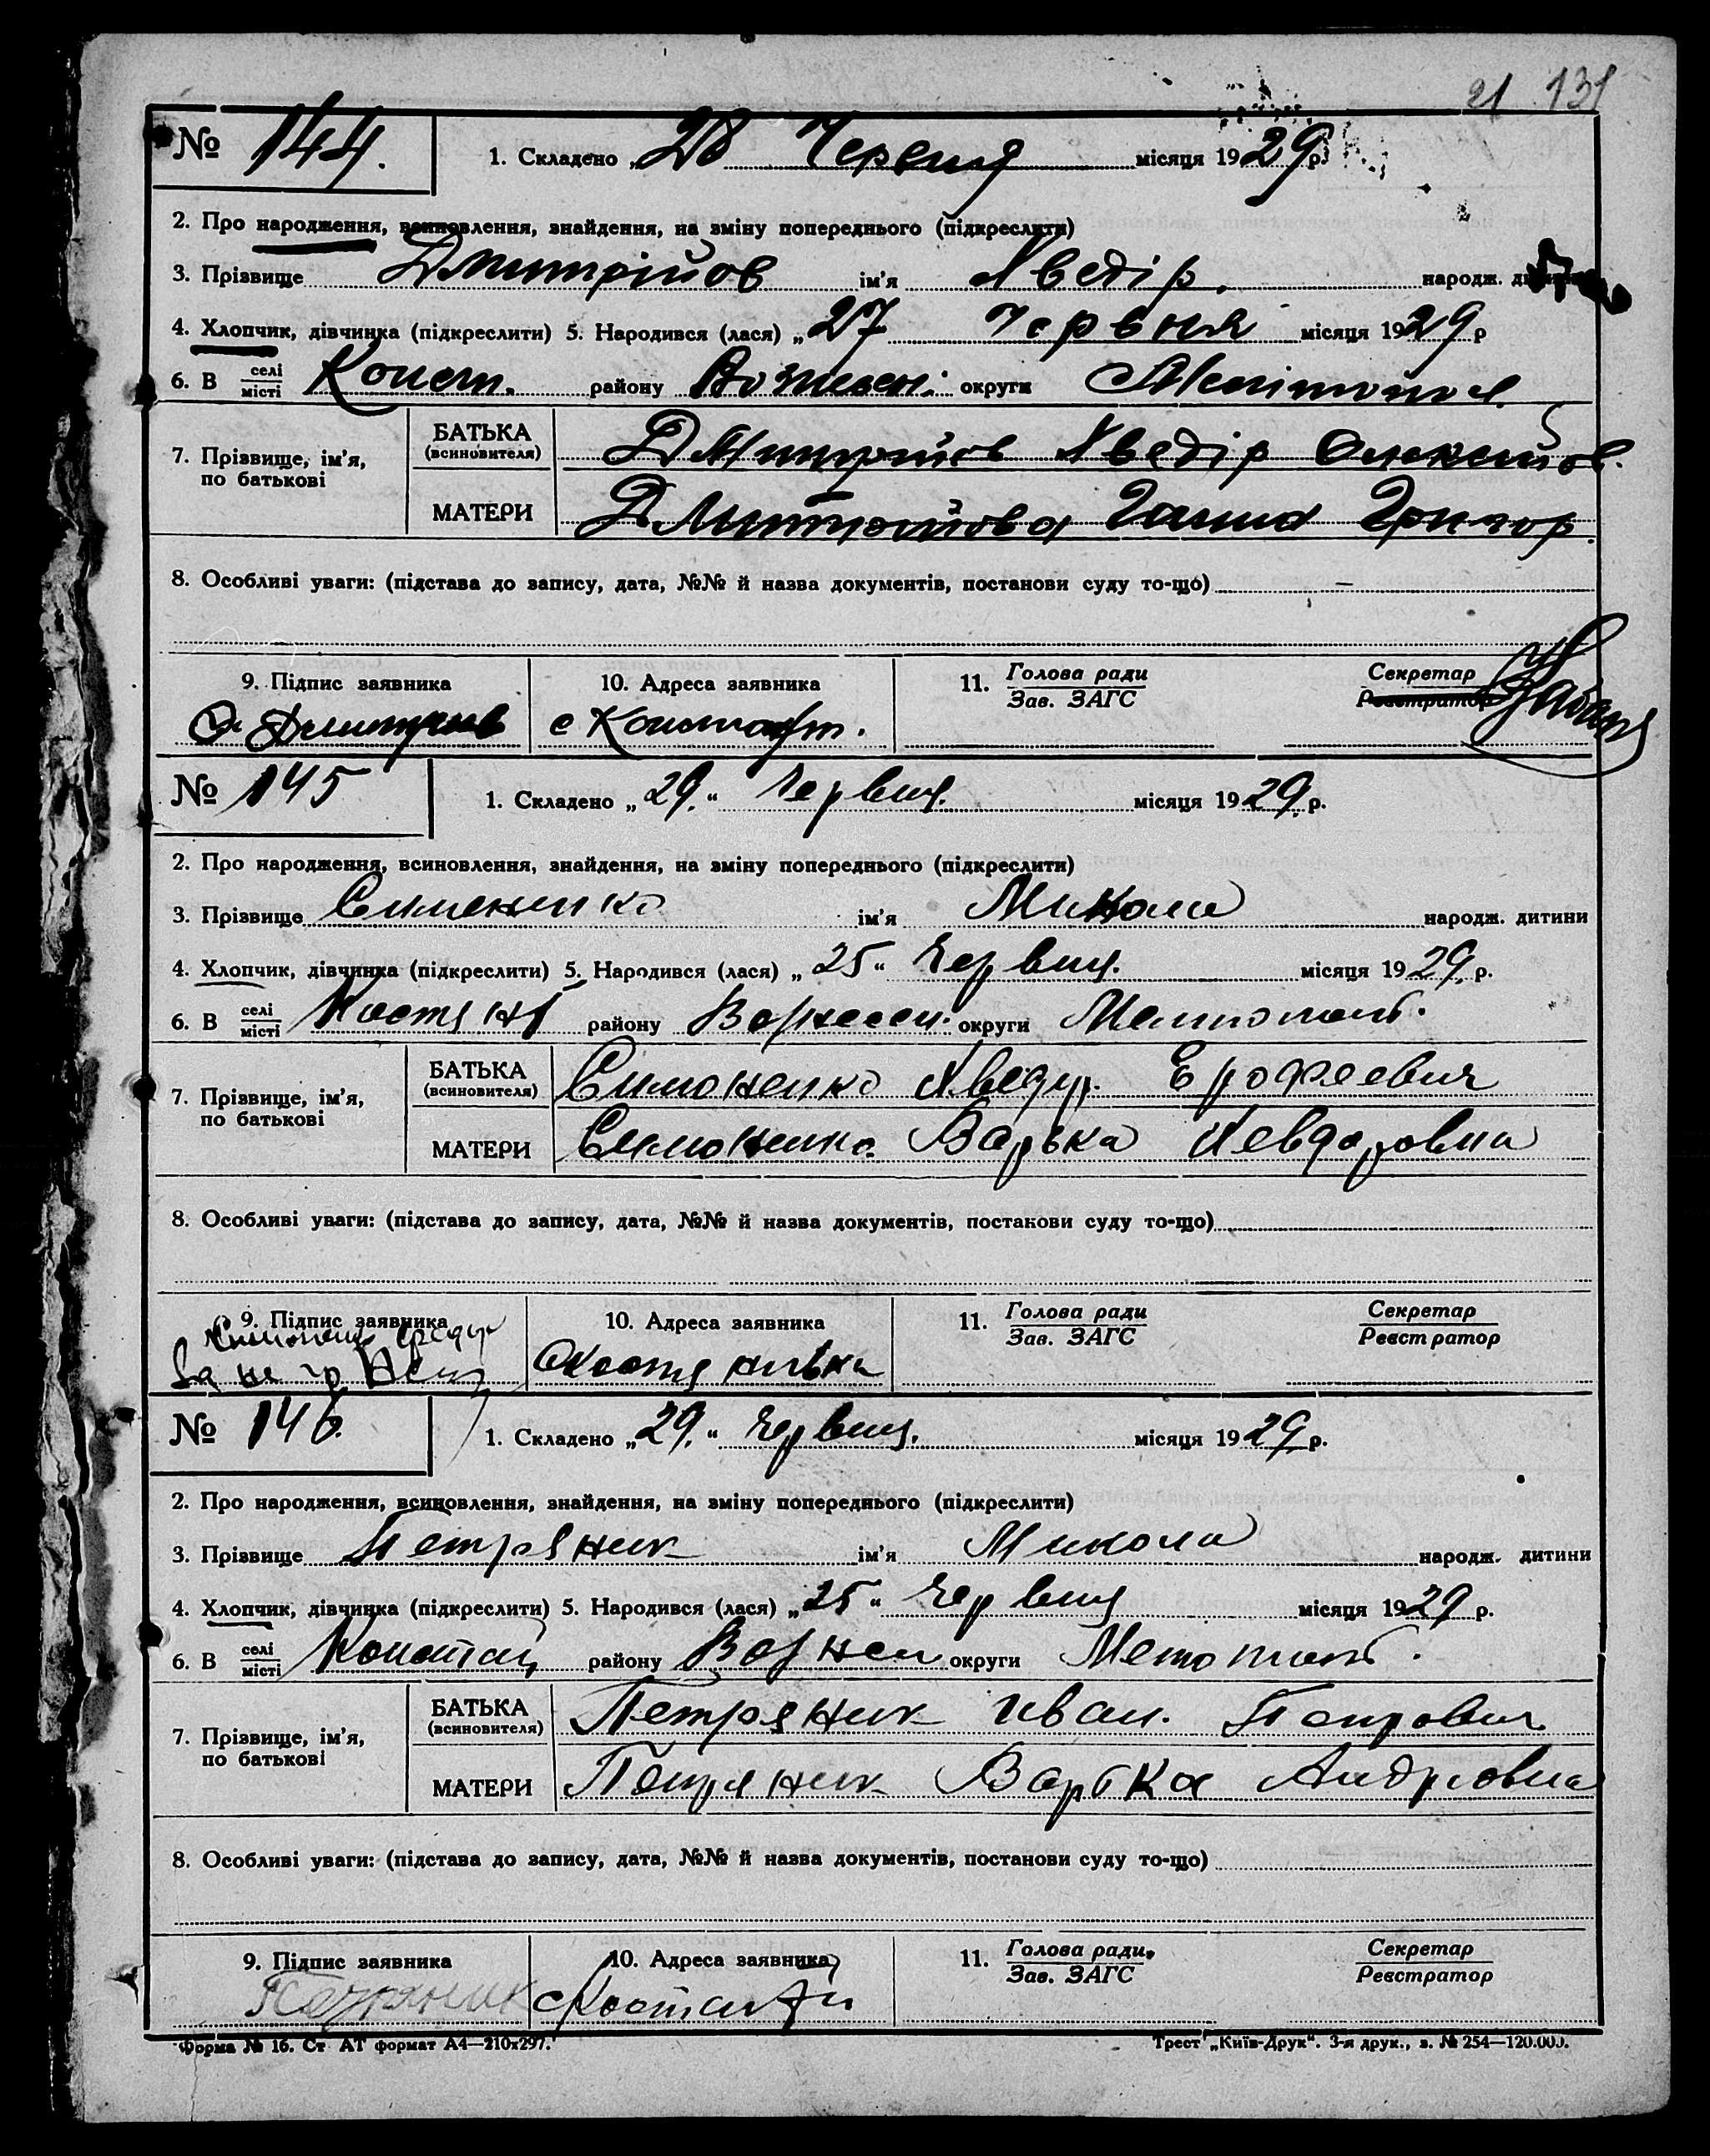 21 131
№ 144. 1. Складено „28 Червня місяця 1929 р.
2. Про народження, всиновлення, знайдення, на зміну попереднього (підкреслити)
3. Прізвище Дмитрійов ім'я Хведір. народж.
4. Хлопчик, дівчинка (підкреслити) 5. Народився (лася) „27 червня місяця 1929 р
6. В селі/місті Конст. району Вознесен. округи Мелітопол.
7. Прізвище, ім'я, по батькові
БАТЬКА (всиновителя) Дмитрійов Хведір Олексійов.
МАТЕРИ Дмитрійова Ганна Григор.
8. Особливі уваги: (підстава до запису, дата, №№ й назва документів, постанови суду то-що) —
9. Підпис заявника 10. Адреса заявника 11. Голова ради/Зав. ЗАГС Секретар/Реєстратор
Дмитриев с Констант.
№ 145 1. Складено „29." Червня. місяця 1929. р.
2. Про народження, всиновлення, знайдення, на зміну попереднього (підкреслити)
3. Прізвище Симоненко ім'я Микола народж. дитини
4. Хлопчик, дівчинка (підкреслити) 5. Народився (лася) „25" Червня. місяця 1929. р.
6. В селі/місті району Вознесен. округи Мелитопол.
7. Прізвище, ім'я, по батькові
БАТЬКА (всиновителя) Симоненко Хведир. Ерофеевич
МАТЕРИ Симоненко. Варька Хевдоровна
8. Особливі уваги: (підстава до запису, дата, №№ й назва документів, постанови суду то-що)
9. Підпис заявника 10. Адреса заявника 11. Голова ради/Зав. ЗАГС Секретар/Реєстратор
№ 146. 1. Складено „29." Червня. місяця 1929. р.
2. Про народження, всиновлення, знайдення, на зміну попереднього (підкреслити)
3. Прізвище Петряник ім'я Микола народж. дитини
4. Хлопчик, дівчинка (підкреслити) 5. Народився (лася) „25" Червня місяця 1929 р.
6. В селі/місті Констан району Вознесен округи
7. Прізвище, ім'я, по батькові
БАТЬКА (всиновителя) Петряник Иван. Петрович
МАТЕРИ Петряник Варька Андреовна
8. Особливі уваги: (підстава до запису, дата, №№ й назва документів, постанови суду то-що)
9. Підпис заявника 10. Адреса заявника 11. Голова ради/Зав. ЗАГС Секретар/Реєстратор
Петряник
Форма № 16. Ст АТ формат А4—210х297. Трест „Київ-Друк". 3-я друк., з. № 254—120.000.